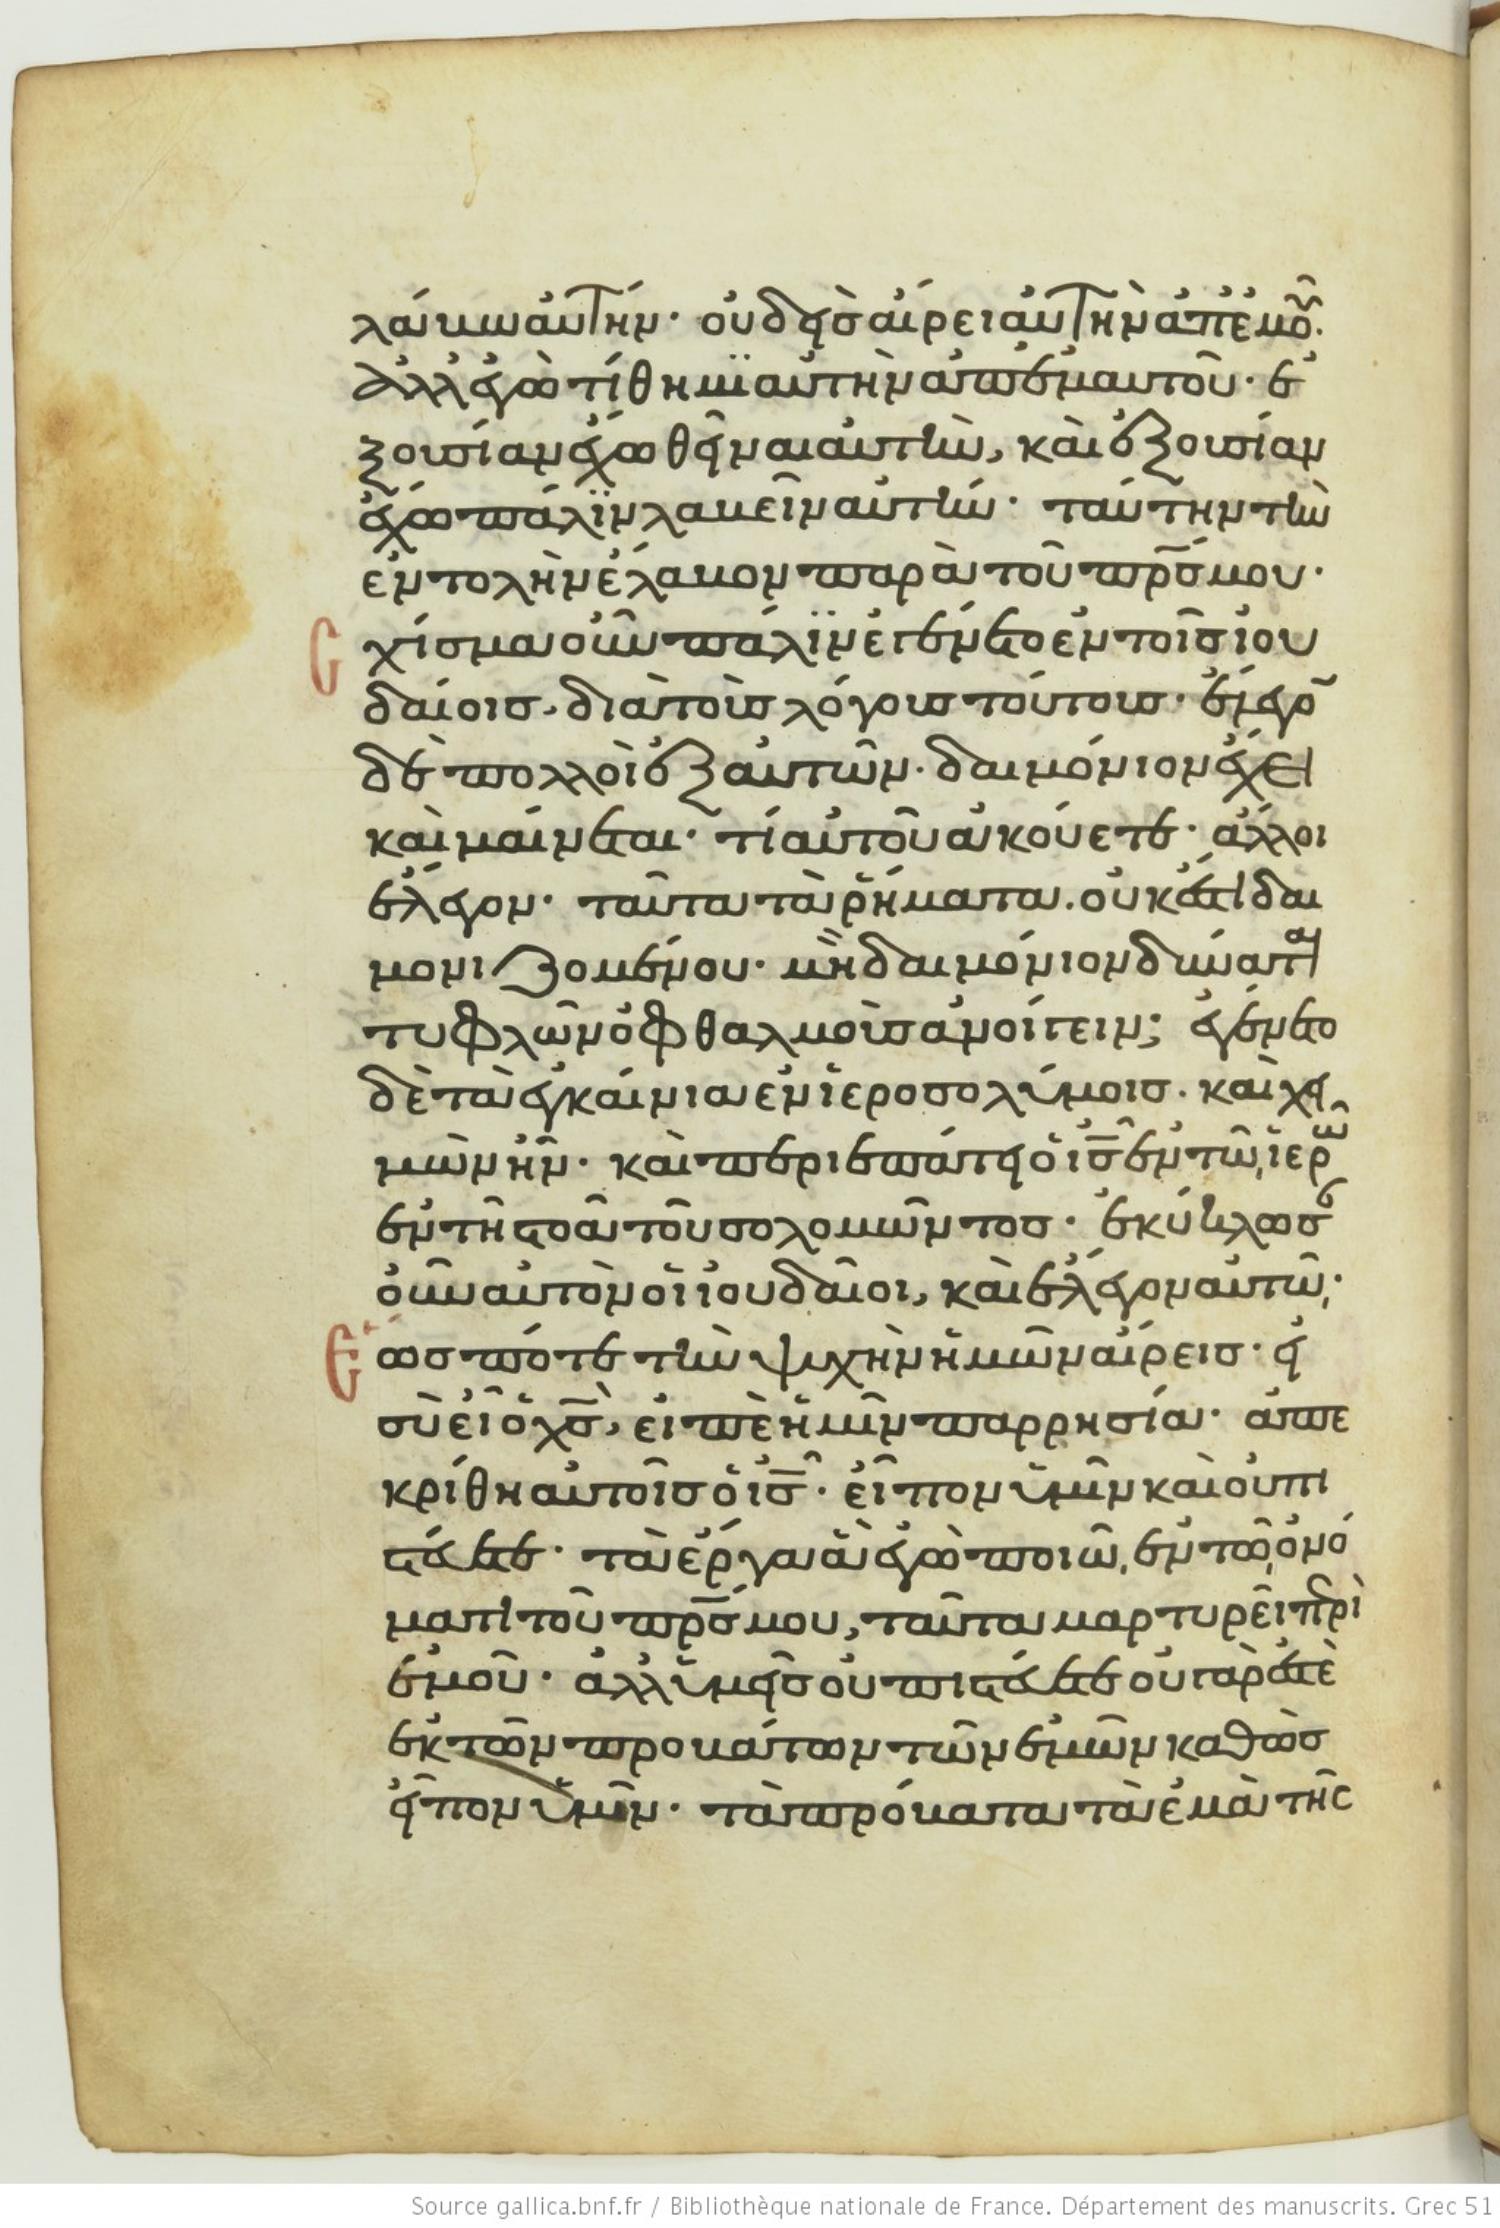 λάβω αὐτήν· οὐδεὶς αἴρει αὐτὴν ἀπ' ἐμοῦ·
ἀλλ' ἐγὼ τίθημϊ αὐτὴν ἀπ' ἐμαυτοῦ· ἐ
ξουσίαν ἔχω θεῖναι αὐτὴν, καὶ ἐξουσίαν
ἔχω πάλϊν λαβεῖν αὐτήν· ταύτην τὴν
ἐντολὴν ἔλαβον παρὰ τοῦ πρσ μου·
Σχίσμα οὖν πάλϊν ἐγένετο ἐν τοῖσ ἰου
δαίοισ, διὰ τοὺσ λόγουσ τούτουσ· ἔλεγον
δὲ πολλοὶ ἐξ αὐτῶν· δαιμόνιον ἔχει
καὶ μαίνεται· τί αὐτοῦ ἀκούετε· ἄλλοι
ἔλεγον· ταῦτα τὰ ῥήματα οὐκ ἔστι δαι
μονιζομένου· μὴ δαιμόνιον δύναται
τυφλῶν ὀφθαλμοὺσ ἀνοίγειν; ἐγένετο
δὲ τὰ ἐγκαίνια ἐν ἱεροσολύμοισ· καὶ χει
μὼν ἦν· καὶ περιεπάτει ὁ ισ ἐν τῶ ἱερῶ
ἐν τῆ στοᾶ τοῦ σολομῶντοσ· ἐκύκλωσαν
οὖν αὐτὸν οἱ ἰουδαῖοι, καὶ ἔλεγον αὐτῶ·
Ἕωσ πότε τὴν ψυχὴν ἡμῶν αἴρεισ· εἰ
σὺ εἶ ὁ χσ, εἰπὲ ἡμῖν παρρησία· ἀπε
κρίθη αὐτοῖσ ὁ ισ· εἶπον ὑμῖν καὶ οὐ πι
στεύετε· τὰ ἔργα ἃ ἐγὼ ποιῶ, ἐν τῶ ὀνό
ματι τοῦ πρσ μου, ταῦτα μαρτυρεῖ περὶ
ἐμοῦ· ἀλλ' ὑμεῖσ οὐ πιστεύετε οὐ γὰρ ἐστὲ
ἐκ τῶν προβάτων τῶν ἐμῶν καθὼσ
εἶπον ὑμῖν· τὰ πρόβατα τὰ ἐμὰ τῆσ
Source gallica.bnf.fr / Bibliothèque nationale de France. Département des manuscrits. Grec 51